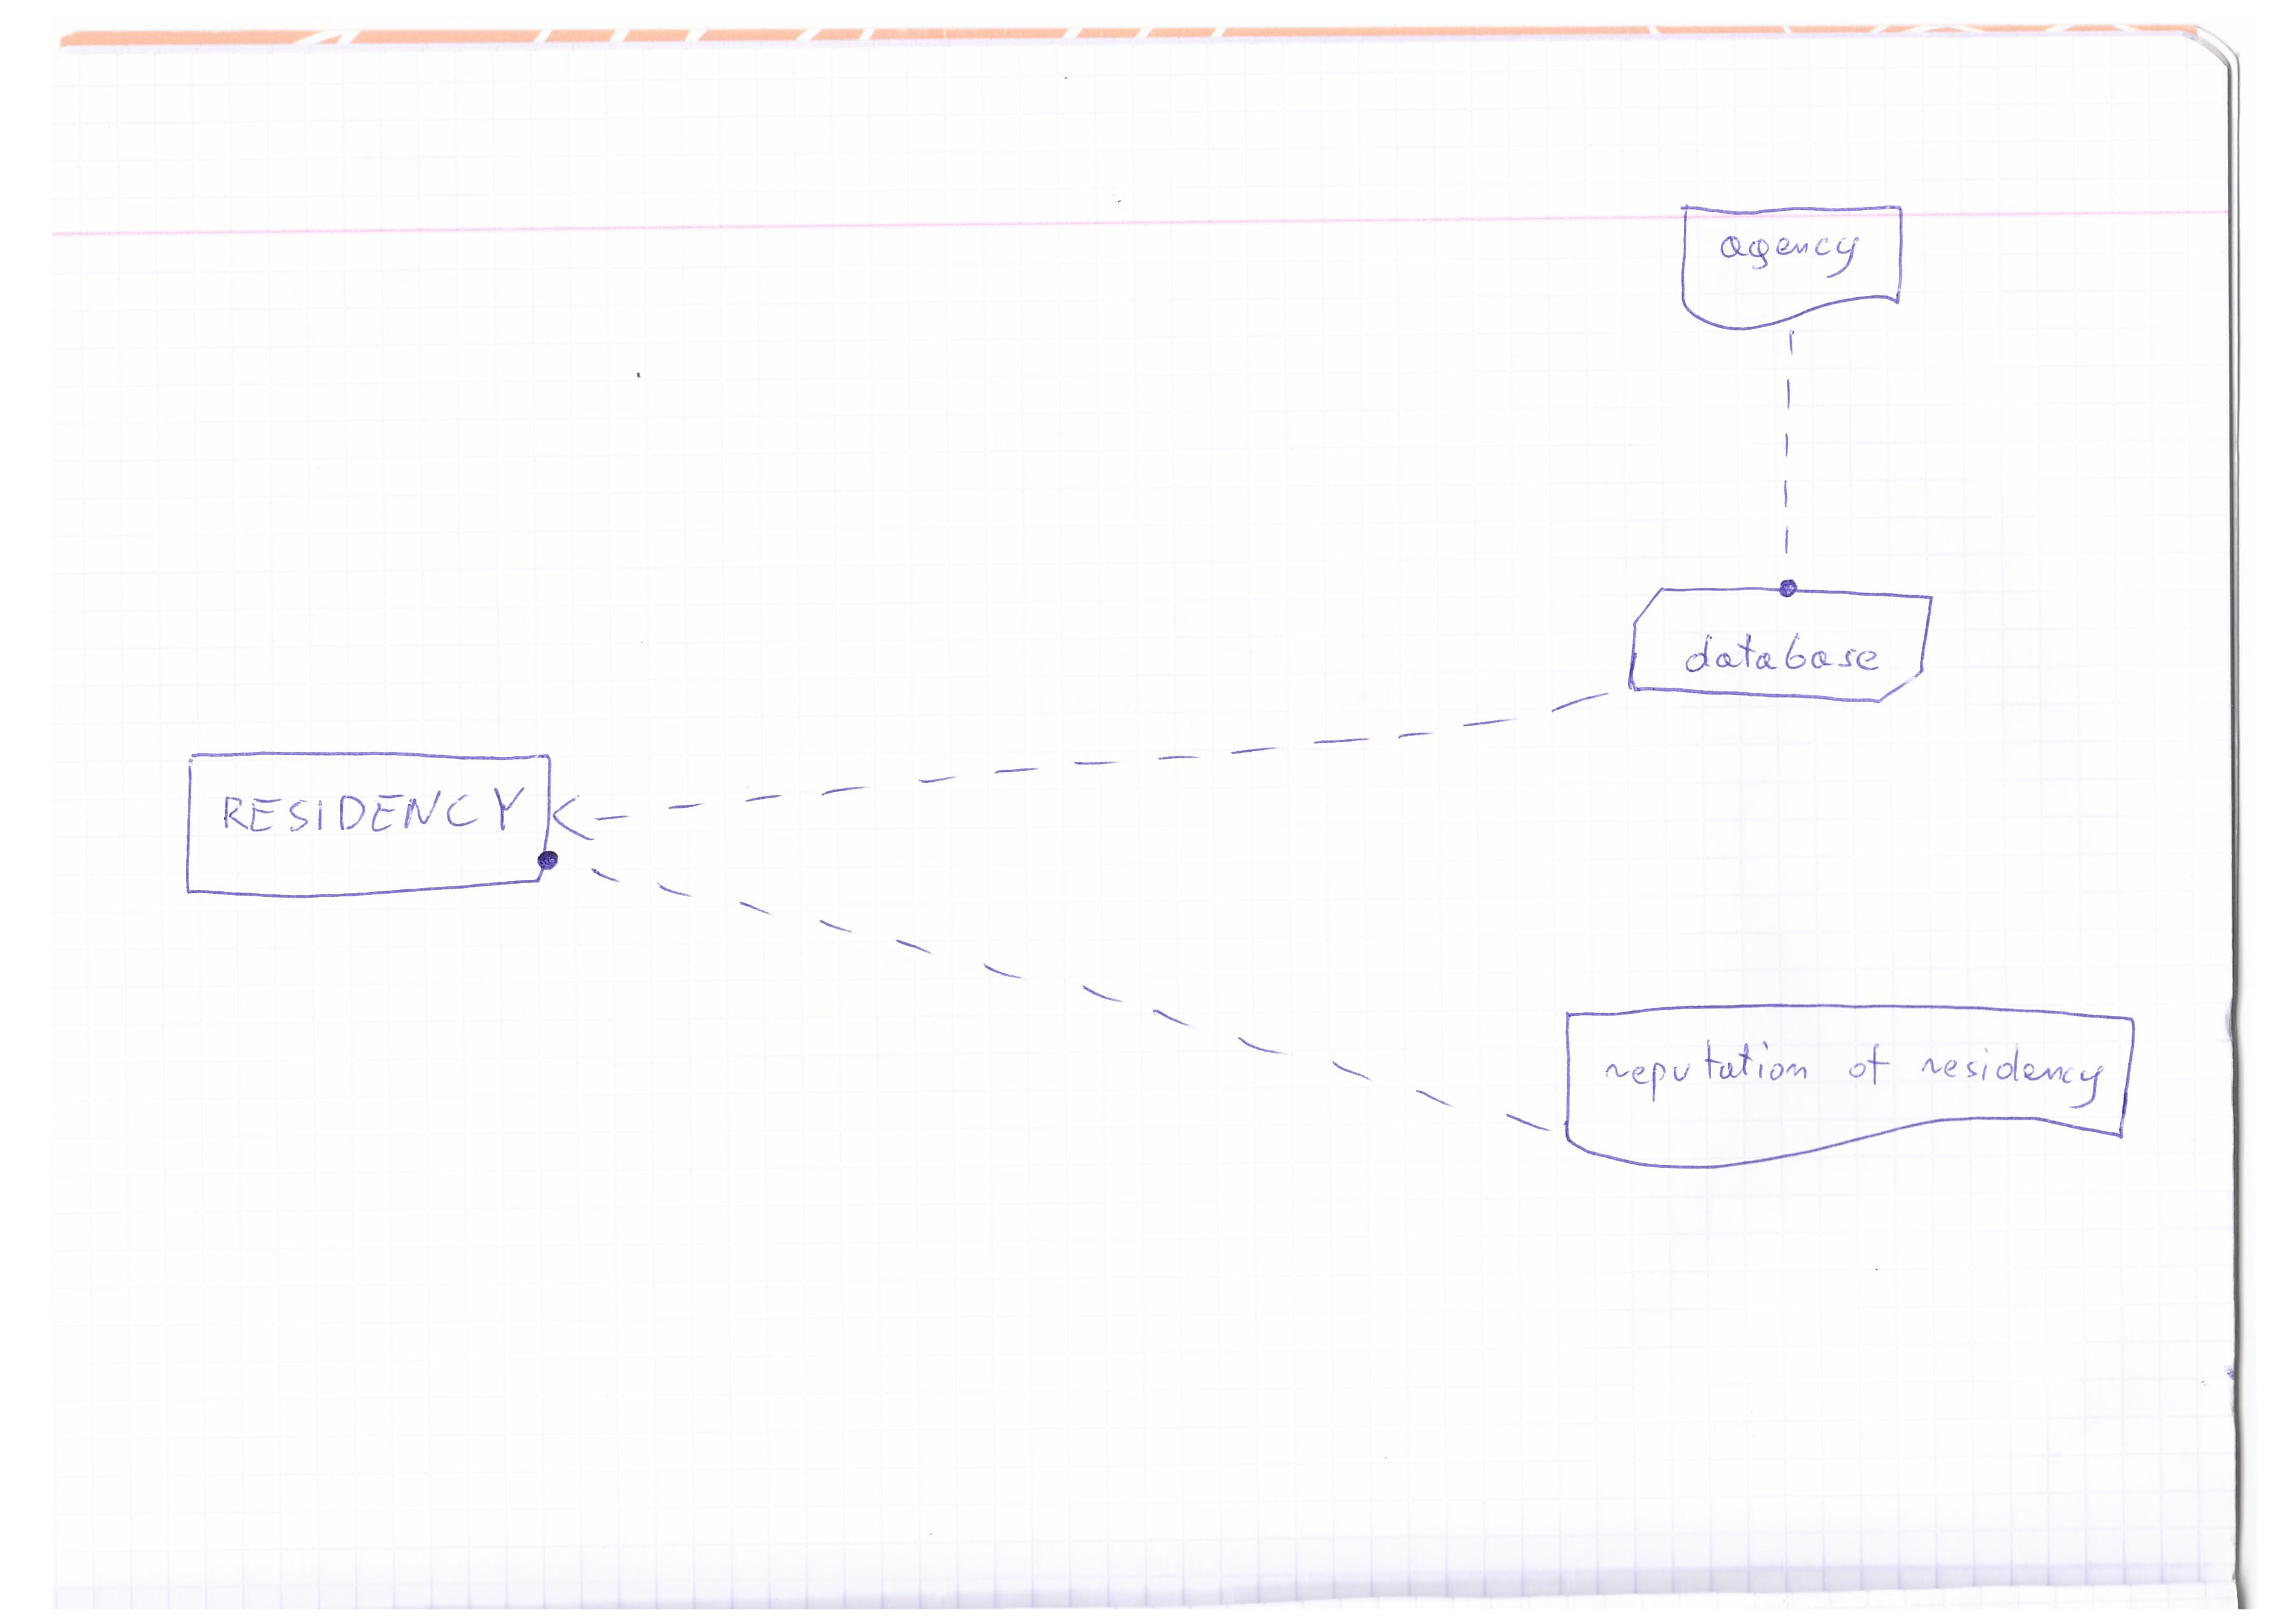 agency
database
RESIDENCY
reputation of residency